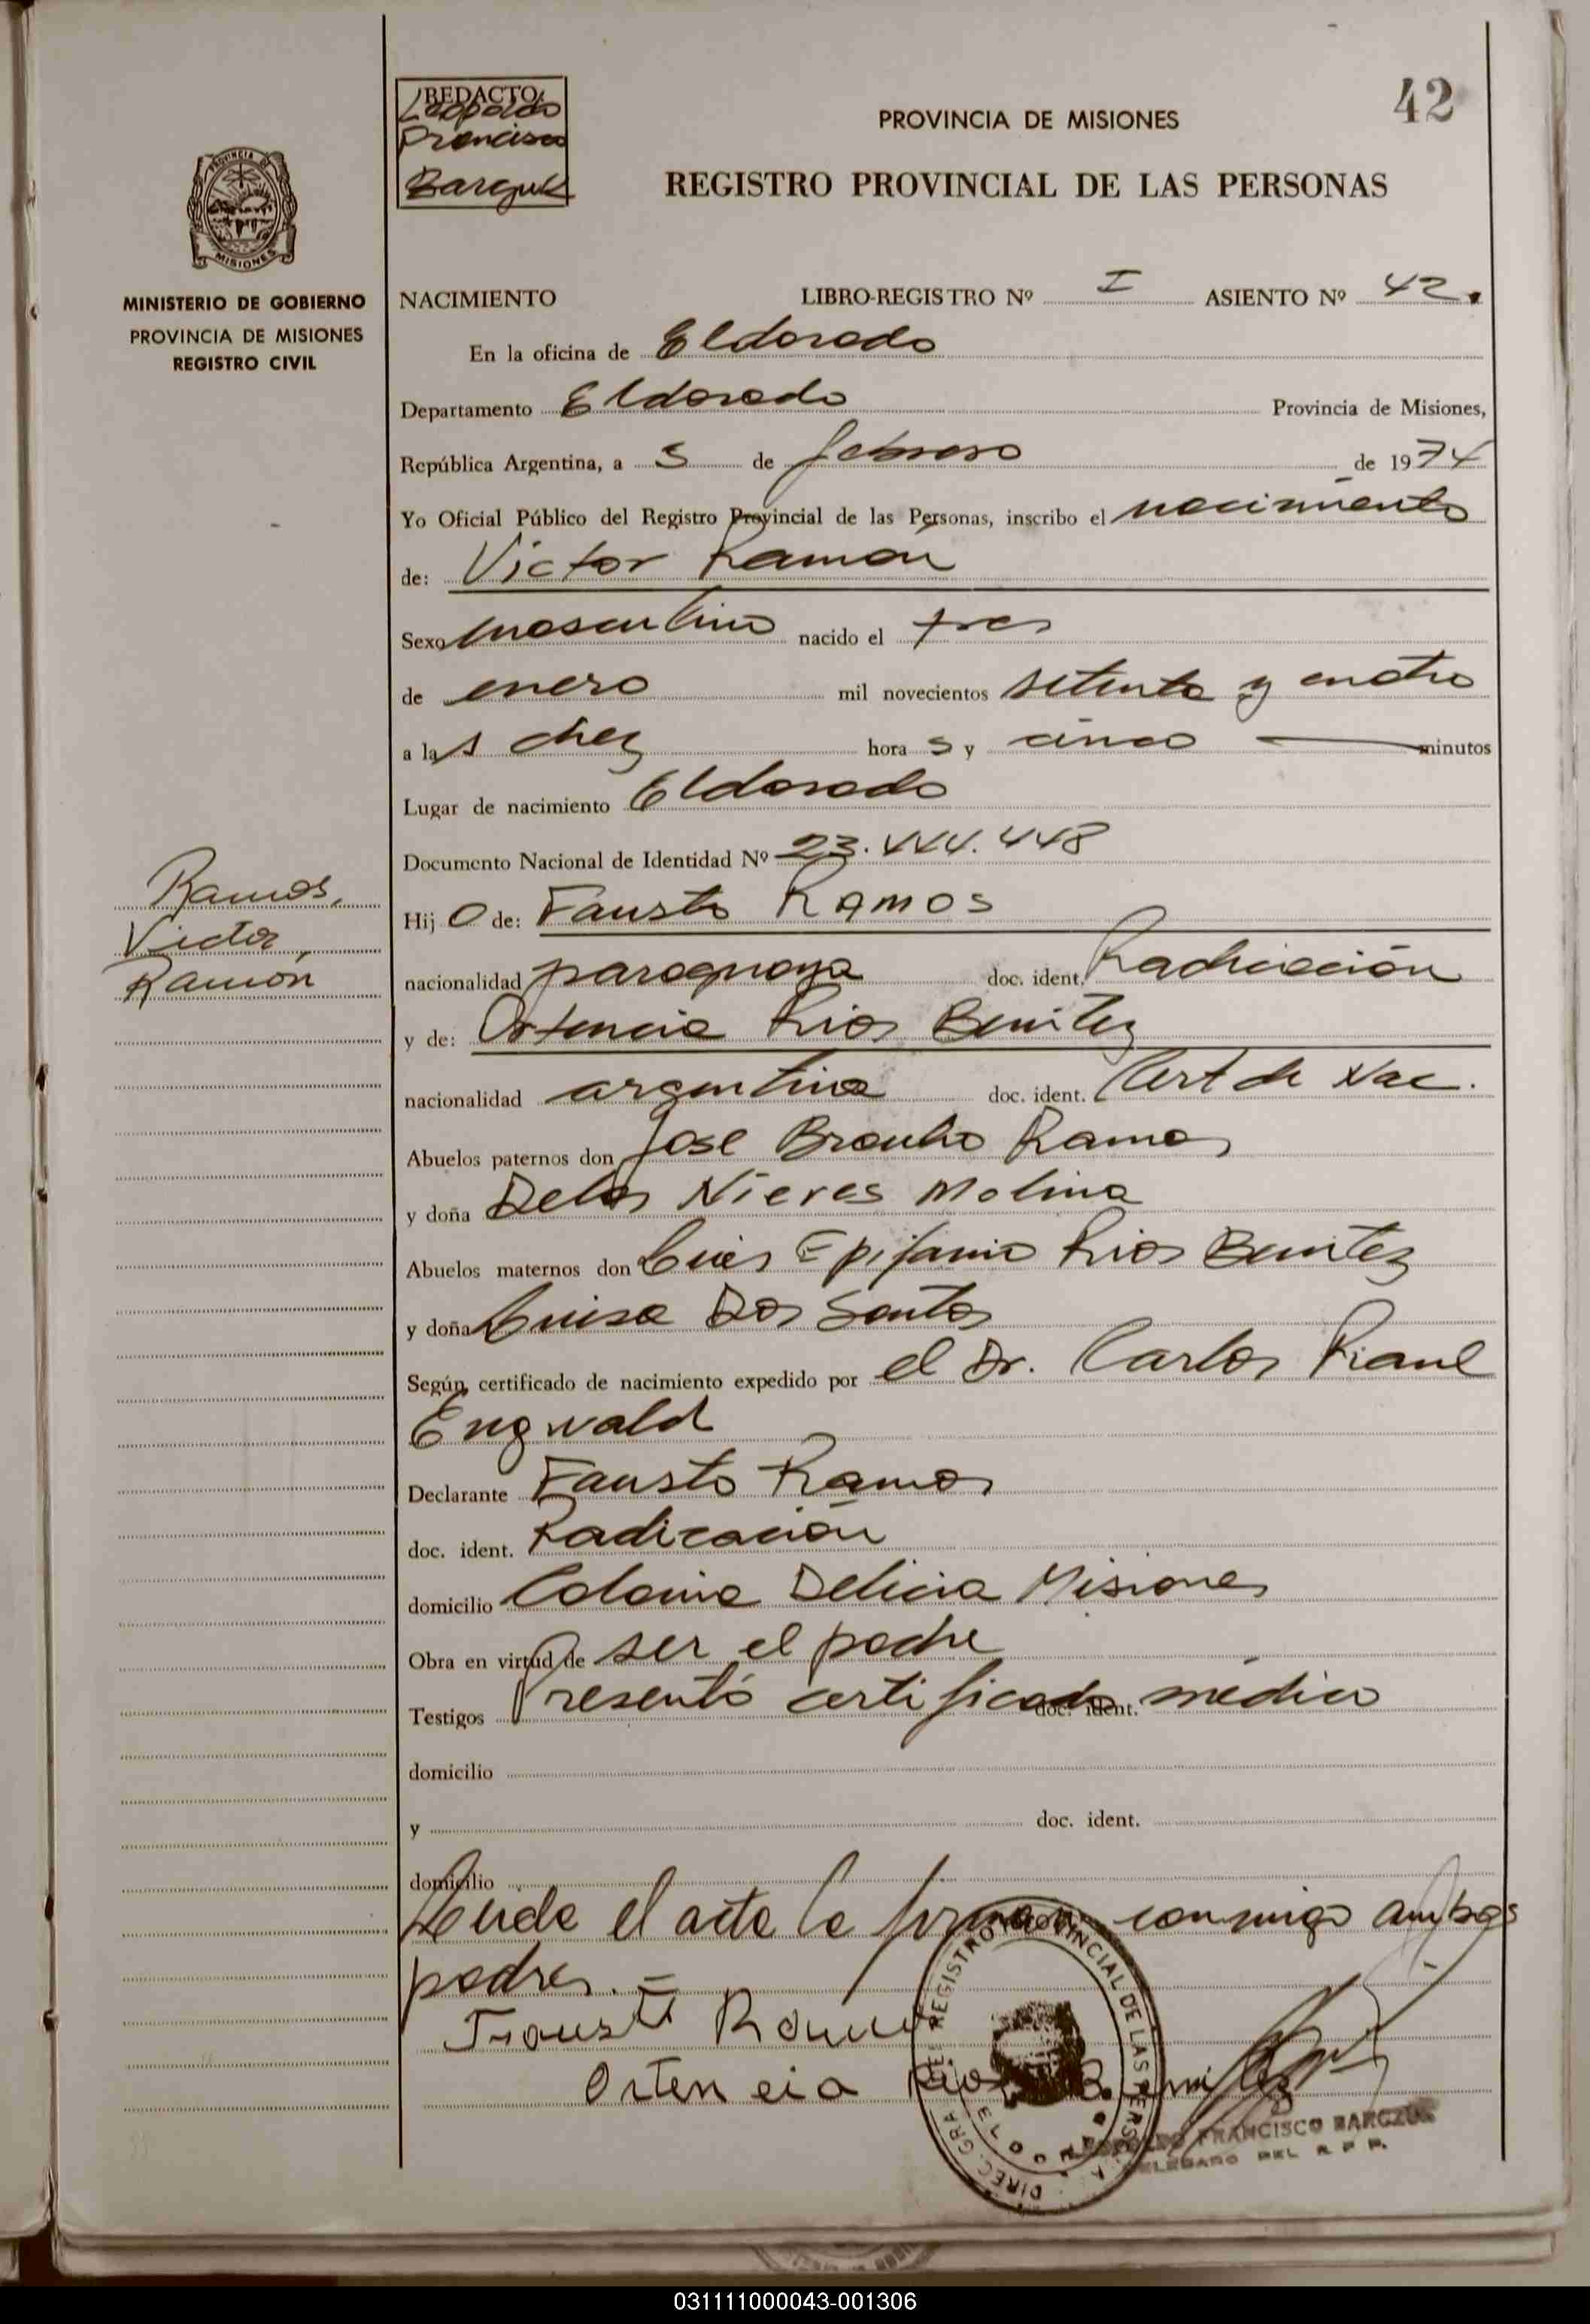 42
REDACTO
Leopoldo
Francisco
PROVINCIA DE MISIONES
REGISTRO PROVINCIAL DE LAS PERSONAS
PROVINCIA DE
MISIONES
MINISTERIO DE GOBIERNO
PROVINCIA DE MISIONES
REGISTRO CIVIL
NACIMIENTO LIBRO-REGISTRO Nº I ASIENTO Nº 42.
En la oficina de Eldorado
Departamento Eldorado Provincia de Misiones,
República Argentina, a 5 de febrero de 1974
Yo Oficial Público del Registro Provincial de las Personas, inscribo el nacimiento
de: Victor Ramon
Sexo masculino nacido el tres
de enero mil novecientos setenta y cuatro
a las diez horas y cinco minutos
Lugar de nacimiento Eldorado
Documento Nacional de Identidad Nº 23.444.448
Ramos,
Victor
Ramón
Hijo de: Fausto Ramos
nacionalidad paraguaya doc. ident. Radicación
y de: Ortencia Rios Benitez
nacionalidad argentina doc. ident. Cert de Nac.
Abuelos paternos don Jose Braulio Ramos
y doña Delos Nieves Molina
Abuelos maternos don Luis Epifanio Rios Benitez
y doña Luisa Dos Santos
Según certificado de nacimiento expedido por el Dr. Carlos Raul
Engwald
Declarante Fausto Ramos
doc. ident. Radicación
domicilio Colonia Delicia Misiones
Obra en virtud de ser el padre
Testigos Presentó certificado médico doc. ident.
domicilio
y doc. ident.
domicilio
Leida el acta la firman conmigo ambos
padres.=
Fausto Ramos
Ortencia Rios Benitez
DIREC. GRAL. DEL REGISTRO PROVINCIAL DE LAS PERSONAS
ELDORADO
LEOPOLDO FRANCISCO BARGZUK
DELEGADO DEL R P P.
031111000043-001306